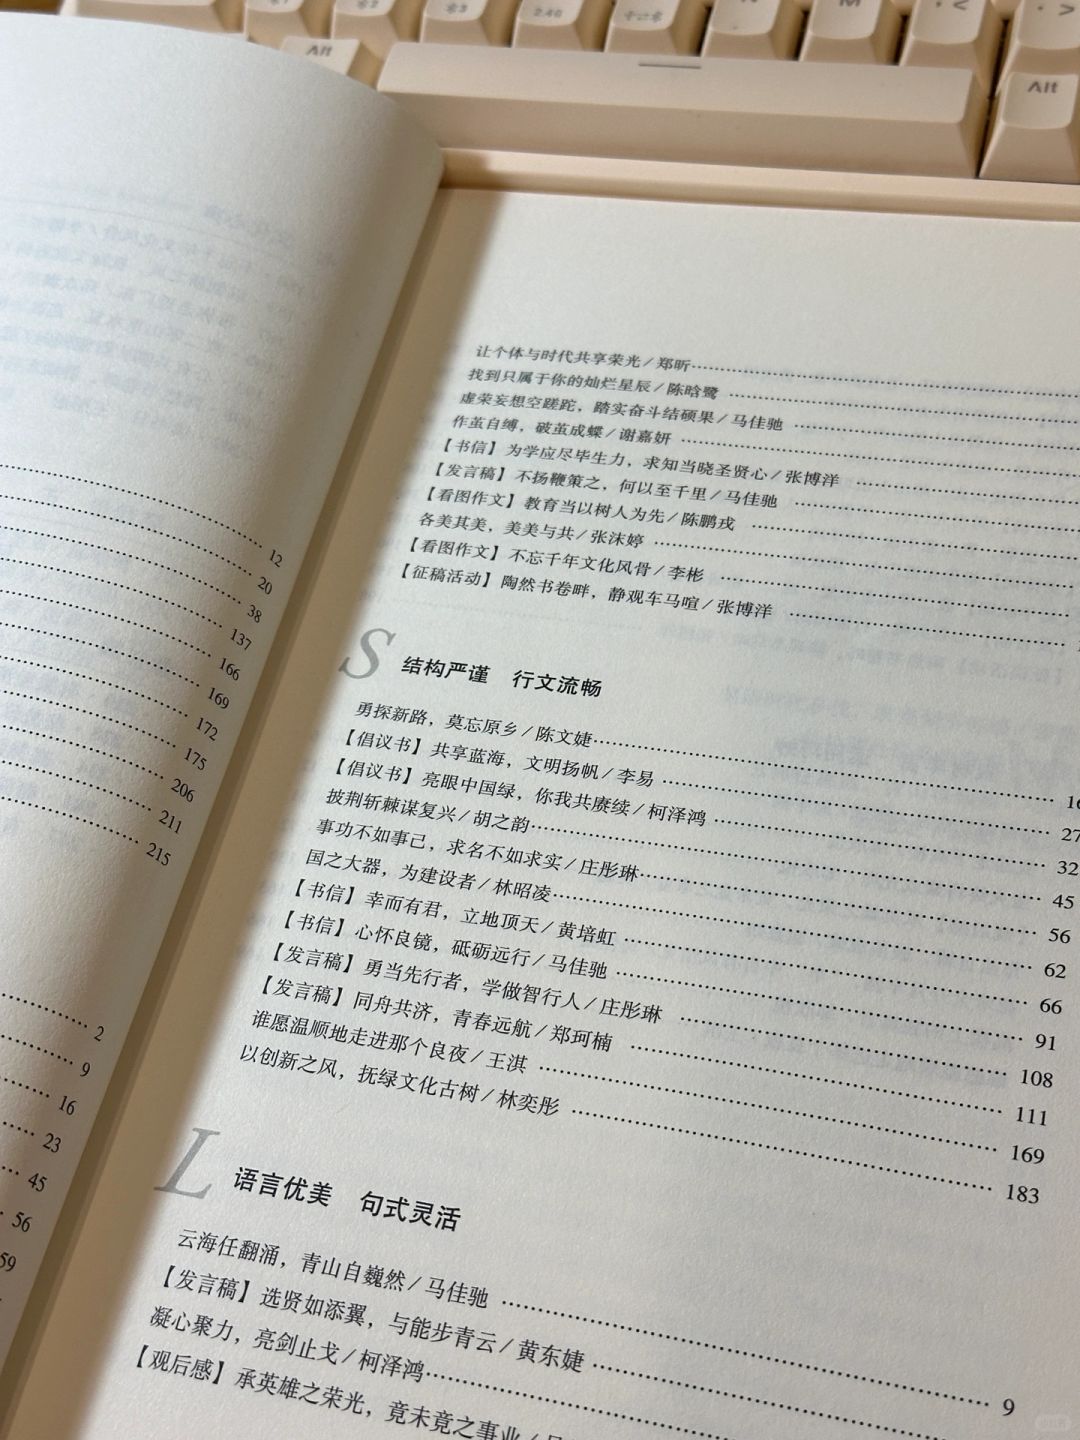 Alt
M
Alt
12
20
38
137
166
169
172
175
206
211
215
2
9
16
23
45
56
59
让个体与时代共享荣光/郑昕
找到只属于你的灿烂星辰/陈晗鹭
虚荣妄想空蹉跎，踏实奋斗结硕果/马佳驰
作茧自缚，破茧成蝶/谢嘉妍
【书信】为学应尽毕生力，求知当晓圣贤心/张博洋
【发言稿】不扬鞭策之，何以至千里/马佳驰
【看图作文】教育当以树人为先/陈鹏戎
各美其美，美美与共/张沫婷
【看图作文】不忘千年文化风骨/李彬
【征稿活动】陶然书卷畔，静观车马喧/张博洋
S 结构严谨 行文流畅
勇探新路，莫忘原乡/陈文婕 16
【倡议书】共享蓝海，文明扬帆/李易 27
【倡议书】亮眼中国绿，你我共赓续/柯泽鸿 32
披荆斩棘谋复兴/胡之韵 45
事功不如事己，求名不如求实/庄彤琳 56
国之大器，为建设者/林昭凌 62
【书信】幸而有君，立地顶天/黄培虹 66
【书信】心怀良镜，砥砺远行/马佳驰 91
【发言稿】勇当先行者，学做智行人/庄彤琳 108
【发言稿】同舟共济，青春远航/郑珂楠 111
谁愿温顺地走进那个良夜/王淇 169
以创新之风，抚绿文化古树/林奕彤 183
L 语言优美 句式灵活
云海任翻涌，青山自巍然/马佳驰 9
【发言稿】选贤如添翼，与能步青云/黄东婕
凝心聚力，亮剑止戈/柯泽鸿
【观后感】承英雄之荣光，竟未竟之事业/